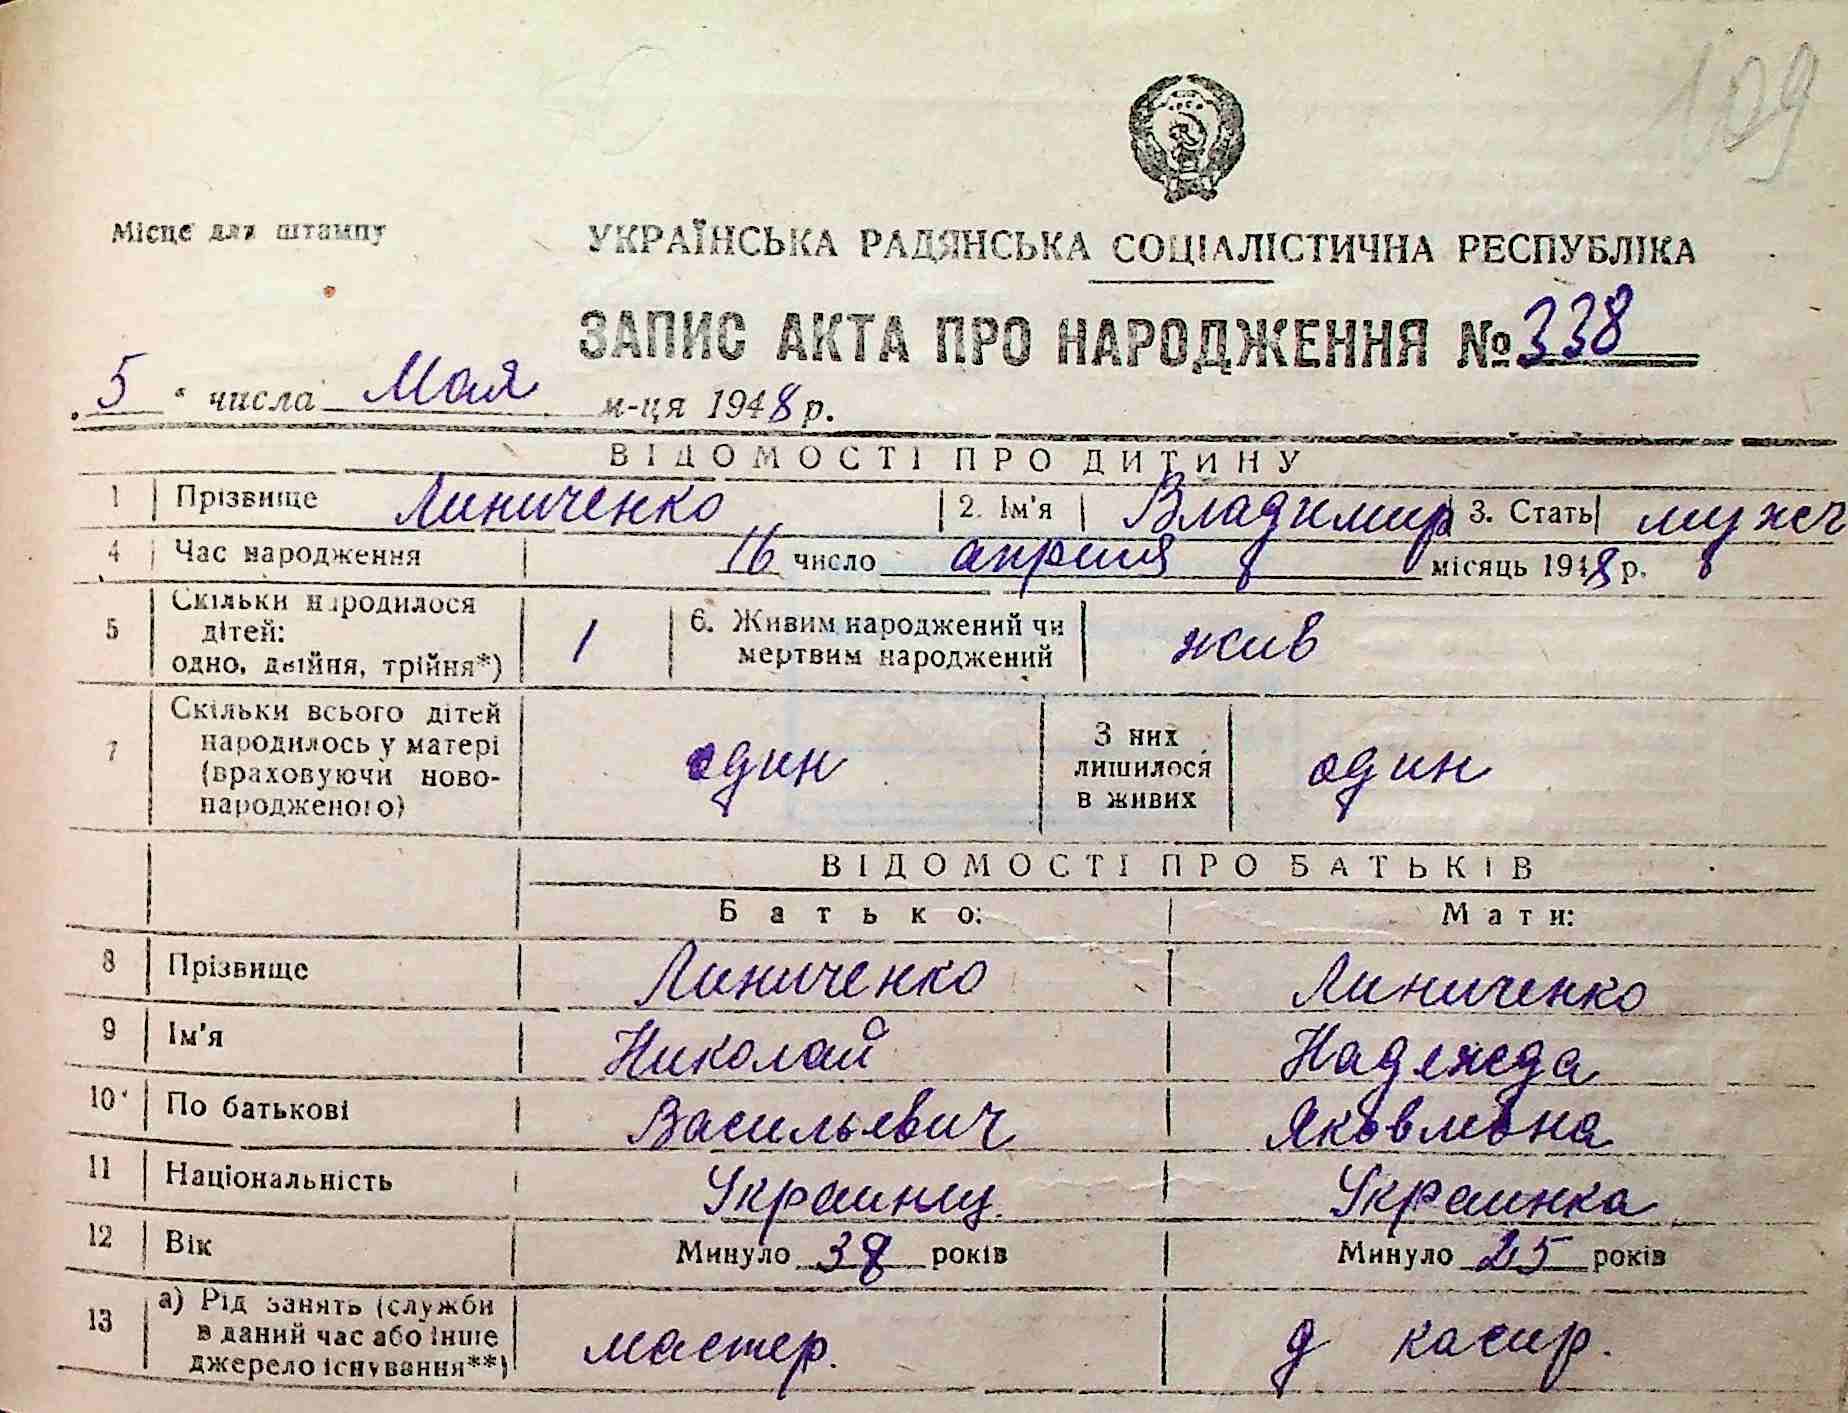 109
Місце для штампу
УКРАЇНСЬКА РАДЯНСЬКА СОЦІАЛІСТИЧНА РЕСПУБЛІКА
ЗАПИС АКТА ПРО НАРОДЖЕННЯ № 338
„5“ числа Мая м-ця 1948 р.
ВІДОМОСТІ ПРО ДИТИНУ
1 Прізвище Линиченко 2. Ім'я Владимир 3. Стать мужч
4 Час народження 16 число апреля місяць 1948 р.
5 Скільки народилося
дітей:
одно, двійня, трійня*) 1
6. Живим народжений чи
мертвим народжений жив
7 Скільки всього дітей
народилось у матері
(враховуючи ново-
народженого) один
З них
лишилося
в живих один
ВІДОМОСТІ ПРО БАТЬКІВ
Батько: Мати:
8 Прізвище Линиченко Линиченко
9 Ім'я Николай Надежда
10 По батькові Васильевич Яковлевна
11 Національність Украинец Украинка
12 Вік Минуло 38 років Минуло 25 років
13 а) Рід занять (служби
в даний час або інше
джерело існування**) мастер. д касир.